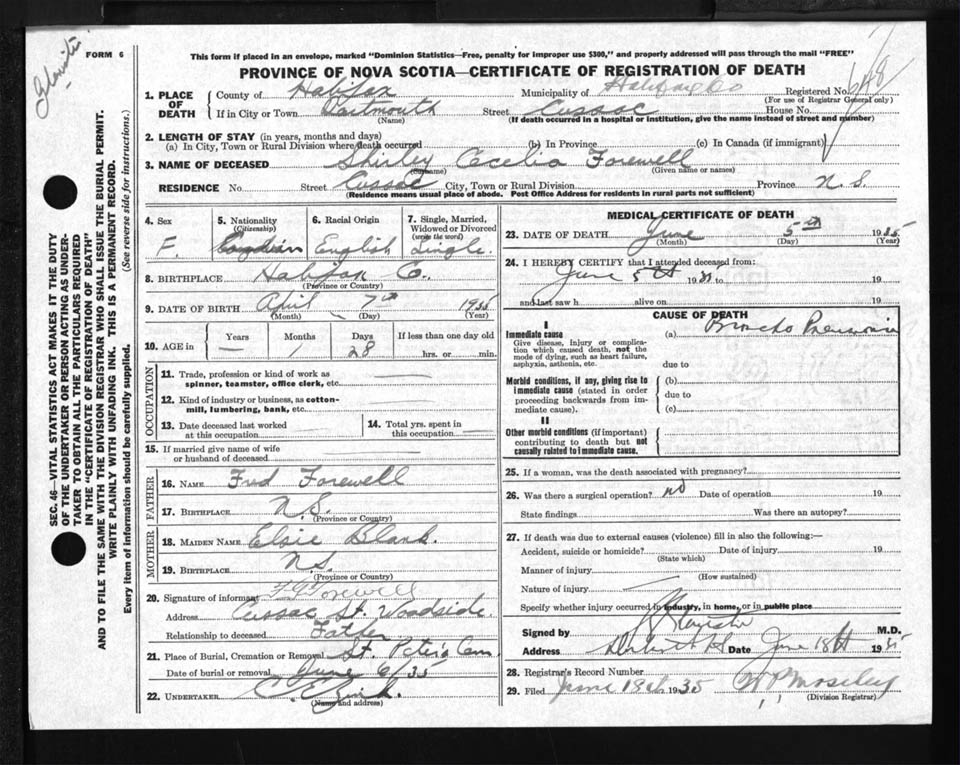 FORM 6
This form if placed in an envelope, marked "Dominion Statistics—Free, penalty for improper use $300," and properly addressed will pass through the mail "FREE"
PROVINCE OF NOVA SCOTIA—CERTIFICATE OF REGISTRATION OF DEATH
SEC. 46—VITAL STATISTICS ACT MAKES IT THE DUTY
OF THE UNDERTAKER OR PERSON ACTING AS UNDER-
TAKER TO OBTAIN ALL THE PARTICULARS REQUIRED
IN THE "CERTIFICATE OF REGISTRATION OF DEATH"
AND TO FILE THE SAME WITH THE DIVISION REGISTRAR WHO SHALL ISSUE THE BURIAL PERMIT.
WRITE PLAINLY WITH UNFADING INK. THIS IS A PERMANENT RECORD.
Every item of information should be carefully supplied. (See reverse side for instructions.)
1. PLACE OF DEATH
County of Halifax Municipality of Halifax Co Registered No. 648
(For use of Registrar General only)
If in City or Town Dartmouth Street Cussac House No.
(Name) (If death occurred in a hospital or institution, give the name instead of street and number)
2. LENGTH OF STAY (in years, months and days)
(a) In City, Town or Rural Division where death occurred (b) In Province (c) In Canada (if immigrant)
3. NAME OF DECEASED Shirley Cecelia Forewell
(Surname) (Given name or names)
RESIDENCE No. Street Cussac City, Town or Rural Division Province N.S.
(Residence means usual place of abode. Post Office Address for residents in rural parts not sufficient)
4. Sex F.
5. Nationality (Citizenship) Canadian
6. Racial Origin English
7. Single, Married, Widowed or Divorced (write the word) Single
8. BIRTHPLACE Halifax Co.
(Province or Country)
9. DATE OF BIRTH April 7th 1935
(Month) (Day) (Year)
10. AGE in Years — Months 1 Days 28 If less than one day old hrs. or min.
OCCUPATION
11. Trade, profession or kind of work as
spinner, teamster, office clerk, etc.
12. Kind of industry or business, as cotton-
mill, lumbering, bank, etc.
13. Date deceased last worked
at this occupation
14. Total yrs. spent in
this occupation
15. If married give name of wife
or husband of deceased
FATHER
16. NAME Fred Forewell
17. BIRTHPLACE N.S.
(Province or Country)
MOTHER
18. MAIDEN NAME Elsie Blank.
19. BIRTHPLACE N.S.
(Province or Country)
20. Signature of informant Forewell
Address Cussac St. Woodside.
Relationship to deceased Father
21. Place of Burial, Cremation or Removal St. Peter's Cem
Date of burial or removal June 6/35
22. UNDERTAKER
(Name and address)
MEDICAL CERTIFICATE OF DEATH
23. DATE OF DEATH June 5th 1935
(Month) (Day) (Year)
24. I HEREBY CERTIFY that I attended deceased from:
June 5th 19 to 19
and last saw h alive on 19
CAUSE OF DEATH
I
Immediate cause
Give disease, injury or complica-
tion which caused death, not the
mode of dying, such as heart failure,
asphyxia, asthenia, etc.
(a) Broncho Pneumonia
due to
Morbid conditions, if any, giving rise to
immediate cause (stated in order
proceeding backwards from im-
mediate cause).
(b)
due to
(c)
II
Other morbid conditions (if important)
contributing to death but not
causally related to immediate cause.
25. If a woman, was the death associated with pregnancy?
26. Was there a surgical operation? no Date of operation 19
State findings Was there an autopsy?
27. If death was due to external causes (violence) fill in also the following:—
Accident, suicide or homicide? Date of injury 19
(State which)
Manner of injury
(How sustained)
Nature of injury
Specify whether injury occurred in industry, in home, or in public place
Signed by M.D.
Address Date June 18th 1935
28. Registrar's Record Number
29. Filed June 19th 1935 W P Moseley
(Division Registrar)